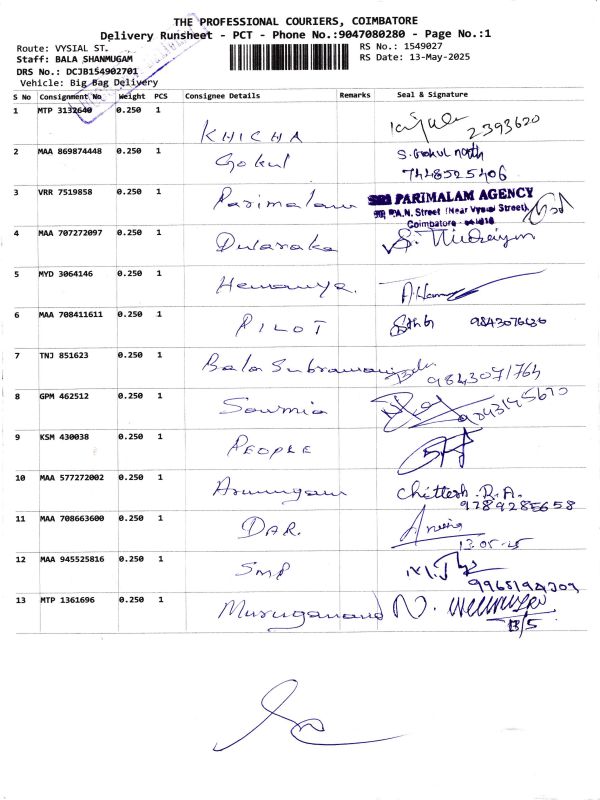 THE PROFESSIONAL COURIERS, COIMBATORE
Delivery Runsheet - PCT - Phone No.:9047080280 - Page No.:1
Route: VYSIAL ST.
RS No.: 1549027
Staff: BALA SHANMUGAM
RS Date: 13-May-2025
DRS No.: DCJB154902701
Vehicle: Big Bag Delivery
S No Consignment No Weight PCS Consignee Details Remarks Seal & Signature
1 MTP 3132640 0.250 1 KHICHA 2393620
2 MAA 869874448 0.250 1 Gokul S. Gokul nath
7448525406
3 VRR 7519858 0.250 1 Parimalam SRI PARIMALAM AGENCY
P.A.N. Street (Near Vysial Street),
Coimbatore
4 MAA 707272097 0.250 1
5 MYD 3064146 0.250 1
6 MAA 708411611 0.250 1 PILOT 9843076636
7 TNJ 851623 0.250 1 Bala Subramani 9843071764
8 GPM 462512 0.250 1 Sowmia 9843145670
9 KSM 430038 0.250 1 PEOPLE
10 MAA 577272002 0.250 1 Arumugam Chittesh. R.A.
9789285658
11 MAA 708663600 0.250 1 DAR.
13.05.25
12 MAA 945525816 0.250 1 SMP
13 MTP 1361696 0.250 1 Muruganand N.
13/5